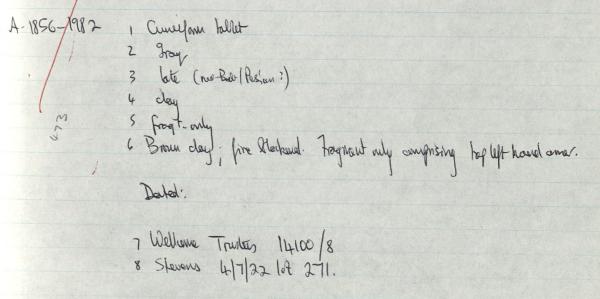 A. 1856-1982
1 Cuneiform tablet
2 Iraq
3 late (neo-Bab/Persian?)
4 clay
5 fragt. only
6 Brown clay; fire blackened. Fragment only comprising top left hand corner.
673
Dated:
7 Wellcome Trustees 14100/8
8 Stevens 4/7/22 lot 271.